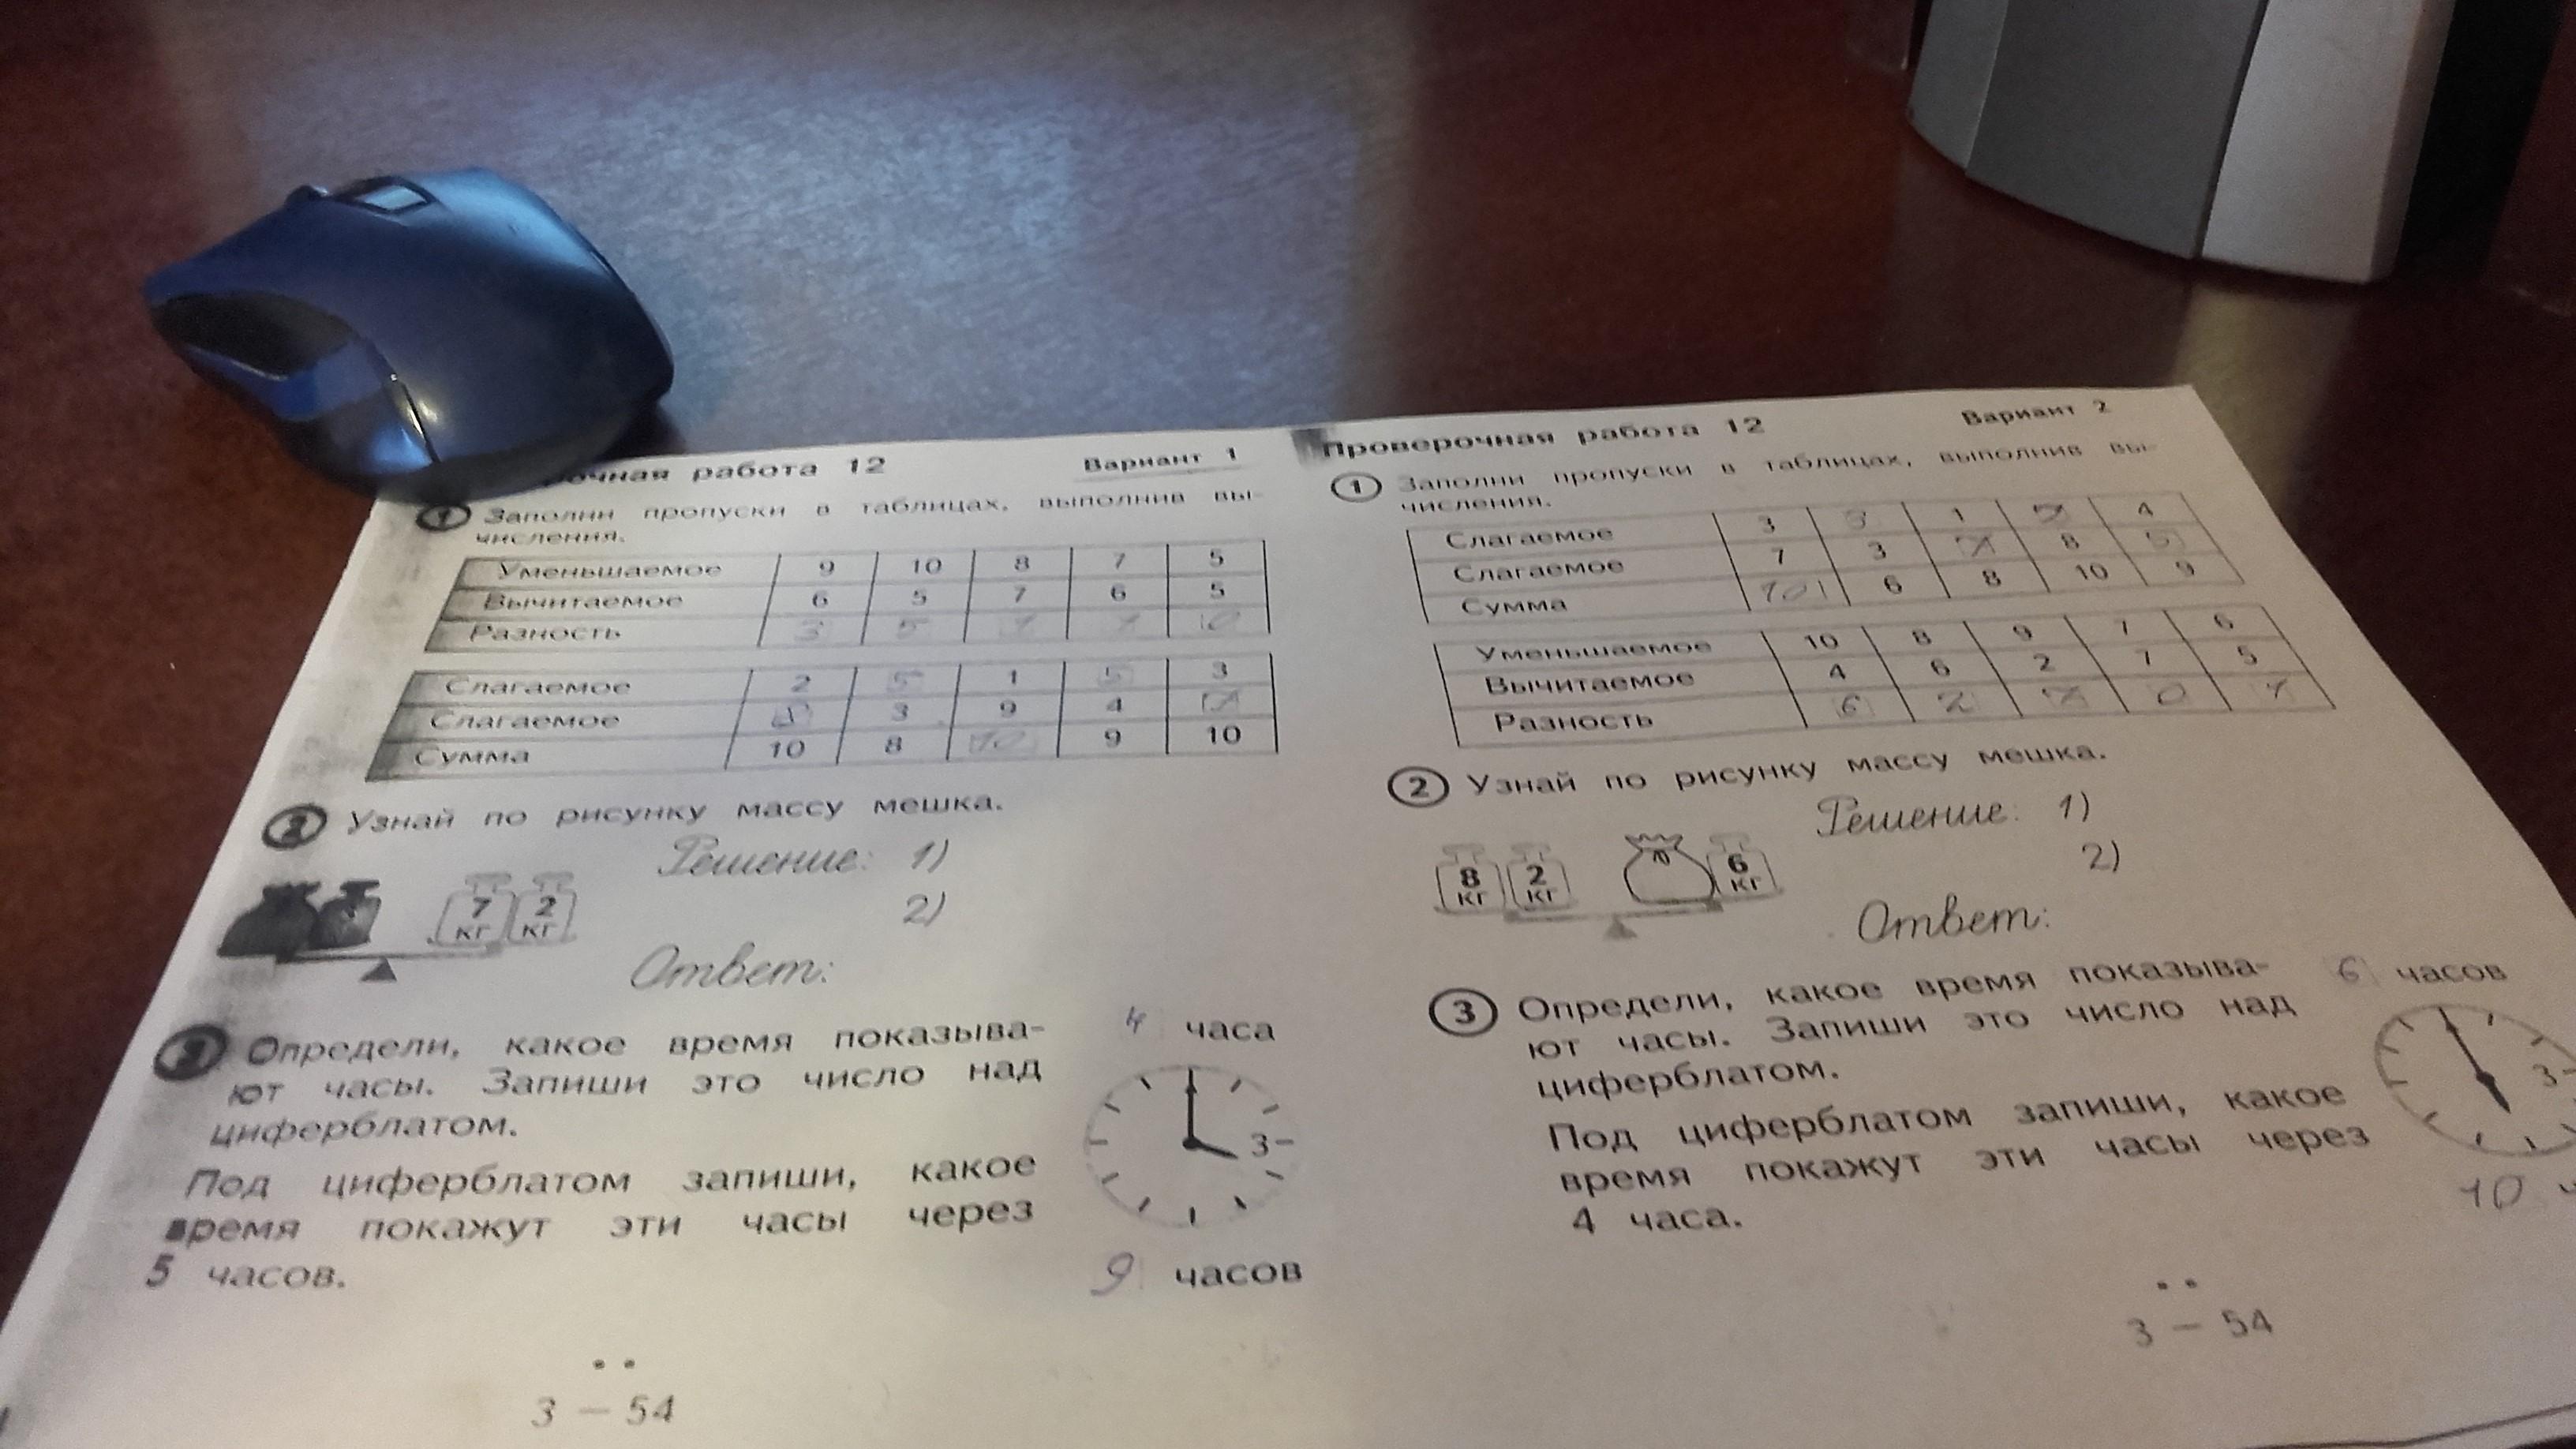 очная работа 12 Вариант 1
1 Заполни пропуски в таблицах, выполнив вы-
числения.
Уменьшаемое 9 10 8 7 5
Вычитаемое 6 5 7 6 5
Разность 3 5 1 1 0
Слагаемое 2 5 1 5 3
Слагаемое 3 9 4 7
Сумма 10 8 10 9 10
2 Узнай по рисунку массу мешка.
Решение: 1)
2)
7 кг 2 кг
Ответ:
3 Определи, какое время показыва-
ют часы. Запиши это число над
циферблатом.
4 часа
3
Под циферблатом запиши, какое
время покажут эти часы через
5 часов.
9 часов
3 – 54
Проверочная работа 12 Вариант 2
1 Заполни пропуски в таблицах, выполнив вы-
числения.
Слагаемое 3 3 1 4
Слагаемое 7 3 7 8 5
Сумма 10 6 8 10 9
Уменьшаемое 10 8 9 7 6
Вычитаемое 4 6 2 7 5
Разность 6 2 7 0 1
2 Узнай по рисунку массу мешка.
Решение: 1)
2)
8 кг 2 кг 6 кг
Ответ:
3 Определи, какое время показыва-
ют часы. Запиши это число над
циферблатом.
6 часов
3
Под циферблатом запиши, какое
время покажут эти часы через
4 часа.
10 ч
3 – 54